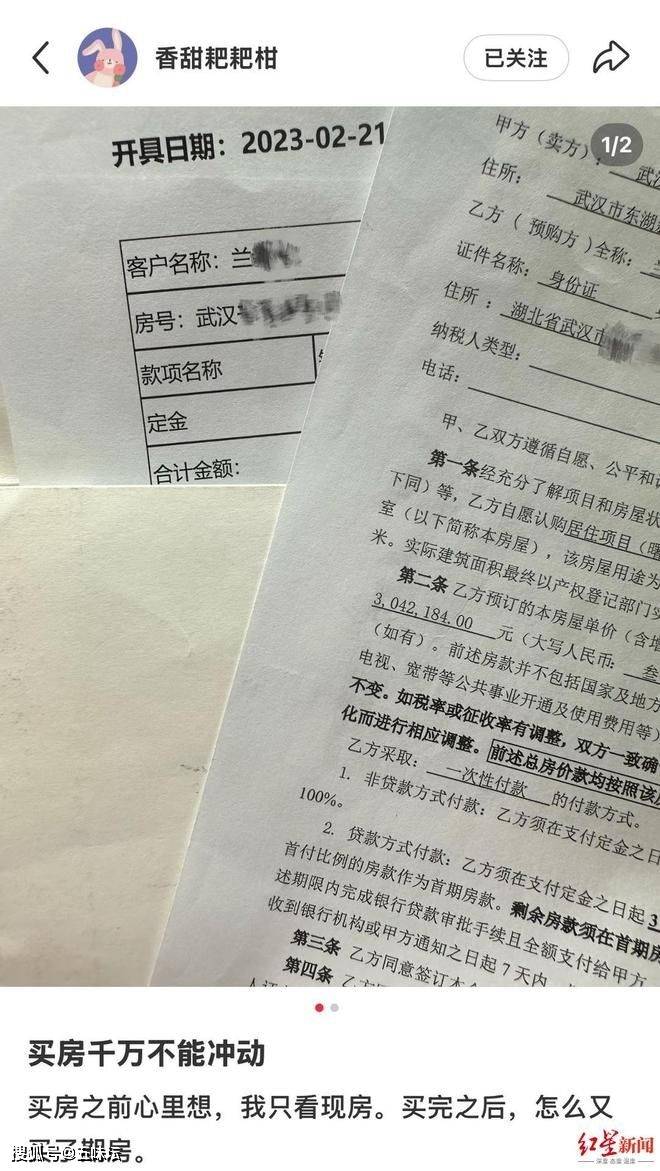 香甜耙耙柑
已关注
1/2
开具日期：2023-02-21
客户名称：兰
房号：武汉
款项名称
定金
合计金额：
甲方（卖方）：武汉
住所：武汉市东湖
乙方（预购方）全称：
证件名称：身份证
住所：湖北省武汉市
纳税人类型：
电话：
甲、乙双方遵循自愿、公平和
第一条经充分了解项目和房屋状
下同）等，乙方自愿认购居住项目（曙
室（以下简称本房屋），该房屋用途为
米。实际建筑面积最终以产权登记部门实
第二条 乙方预订的本房屋单价（含增
3,042,184.00 元（大写人民币：叁
（如有）。前述房款并不包括国家及地方
电视、宽带等公共事业开通及使用费用等）
不变。如税率或征收率有调整，双方一致确
化而进行相应调整。前述总房价款均按照该房
乙方采取：一次性付款 的付款方式。
1. 非贷款方式付款：乙方须在支付定金之日
100%。
2. 贷款方式付款：乙方须在支付定金之日起 3
首付比例的房款作为首期房款。剩余房款须在首期房
述期限内完成银行贷款审批手续且全额支付给甲方
收到银行机构或甲方通知之日起 7 天内
第三条 乙方同意签订本
第四条 乙方
买房千万不能冲动
买房之前心里想，我只看现房。买完之后，怎么又
买了期房。
搜狐号@五味坛
红星新闻
深度 态度 温度